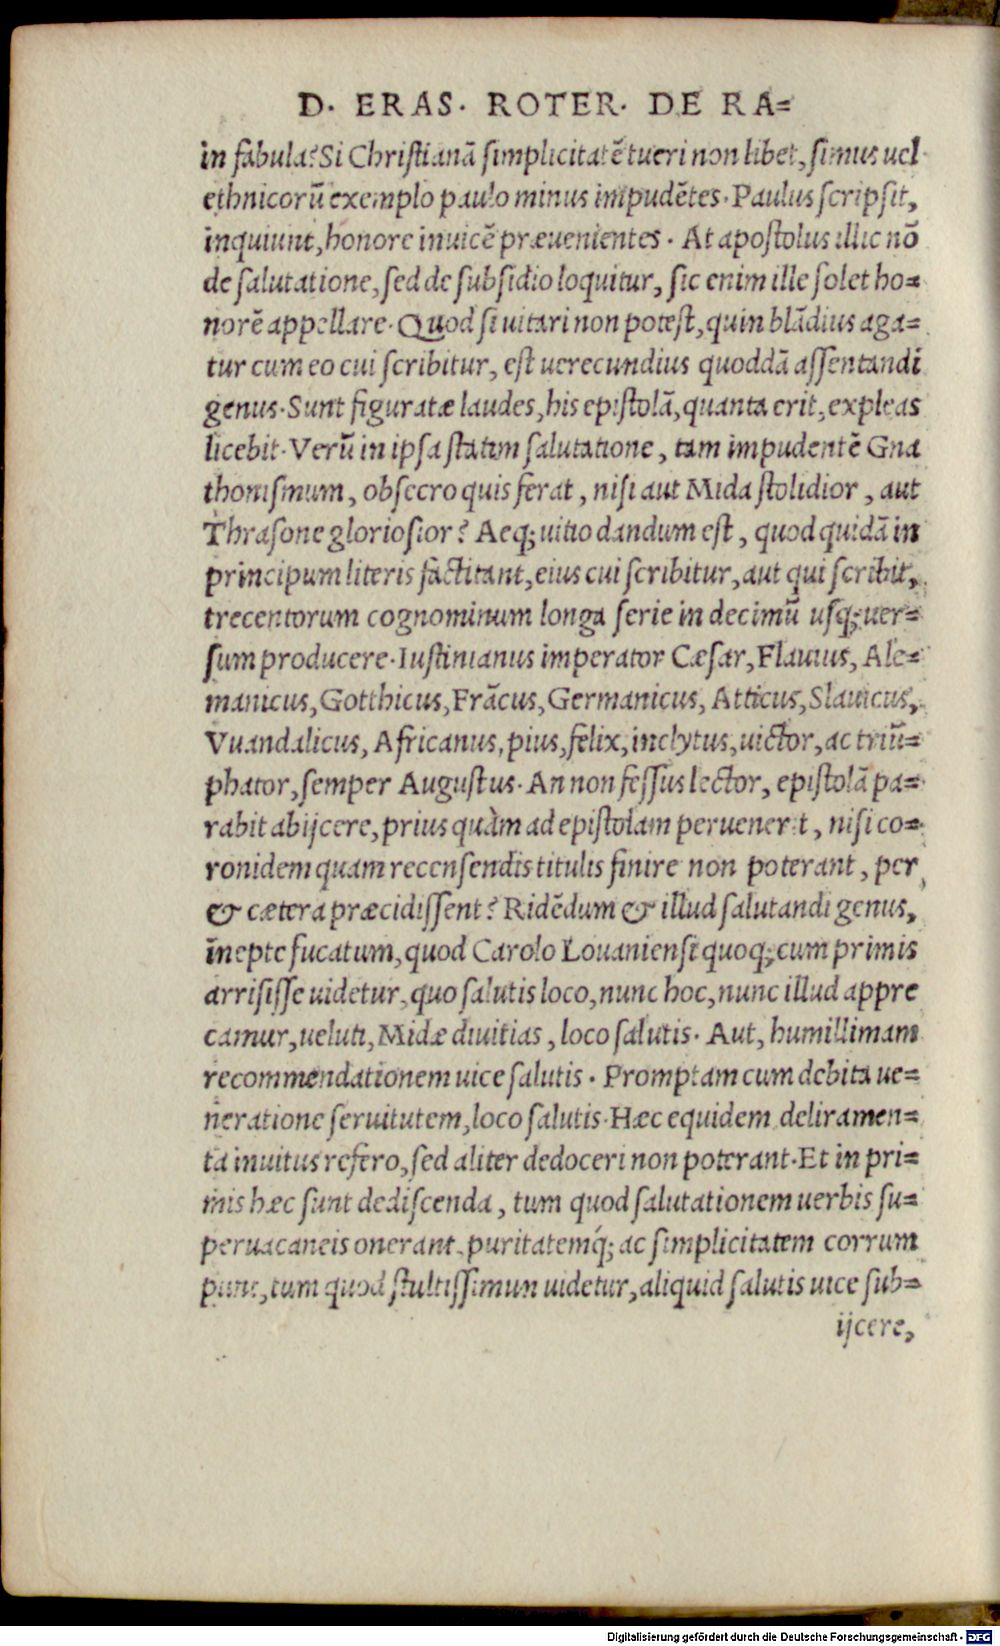 D. ERAS. ROTER. DE RA=
in fabula? Si Christianã simplicitatẽ tueri non libet, simus uel
ethnicorũ exemplo paulo minus impudẽtes. Paulus scripsit,
inquiunt, honore inuicẽ præuenientes. At apostolus illic nõ
de salutatione, sed de subsidio loquitur, sic enim ille solet ho=
norẽ appellare. Quod si uitari non potest, quin blãdius aga=
tur cum eo cui scribitur, est uerecundius quoddã assentandi
genus. Sunt figuratæ laudes, his epistolã, quanta erit, expleas
licebit. Verũ in ipsa statim salutatione, tam impudentẽ Gna
thonismum, obsecro quis ferat, nisi aut Mida stolidior, aut
Thrasone gloriosior? Aeq; uitio dandum est, quod quidã in
principum literis factitant, eius cui scribitur, aut qui scribit,
trecentorum cognominum longa serie in decimũ usq; uer=
sum producere. Iustinianus imperator Cæsar, Flauius, Ale=
manicus, Gotthicus, Frãcus, Germanicus, Atticus, Slauicus,
Vuandalicus, Africanus, pius, felix, inclytus, uictor, ac triũ=
phator, semper Augustus. An non fessus lector, epistolã pa=
rabit abijcere, prius quàm ad epistolam peruenerit, nisi co=
ronidem quam recensendis titulis finire non poterant, per
& cætera præcidissent? Ridẽdum & illud salutandi genus,
inepte fucatum, quod Carolo Louaniensi quoq; cum primis
arrisisse uidetur, quo salutis loco, nunc hoc, nunc illud appre
camur, ueluti, Midæ diuitias, loco salutis. Aut, humillimam
recommendationem uice salutis. Promptam cum debita ue=
neratione seruitutem, loco salutis. Hæc equidem deliramen=
ta inuitus refero, sed aliter dedoceri non poterant. Et in pri=
mis hæc sunt dediscenda, tum quod salutationem uerbis su=
peruacaneis onerant, puritatemq́; ac simplicitatem corrum
punt, tum quod stultissimun uidetur, aliquid salutis uice sub=
ijcere,
Digitalisierung gefördert durch die Deutsche Forschungsgemeinschaft - DFG